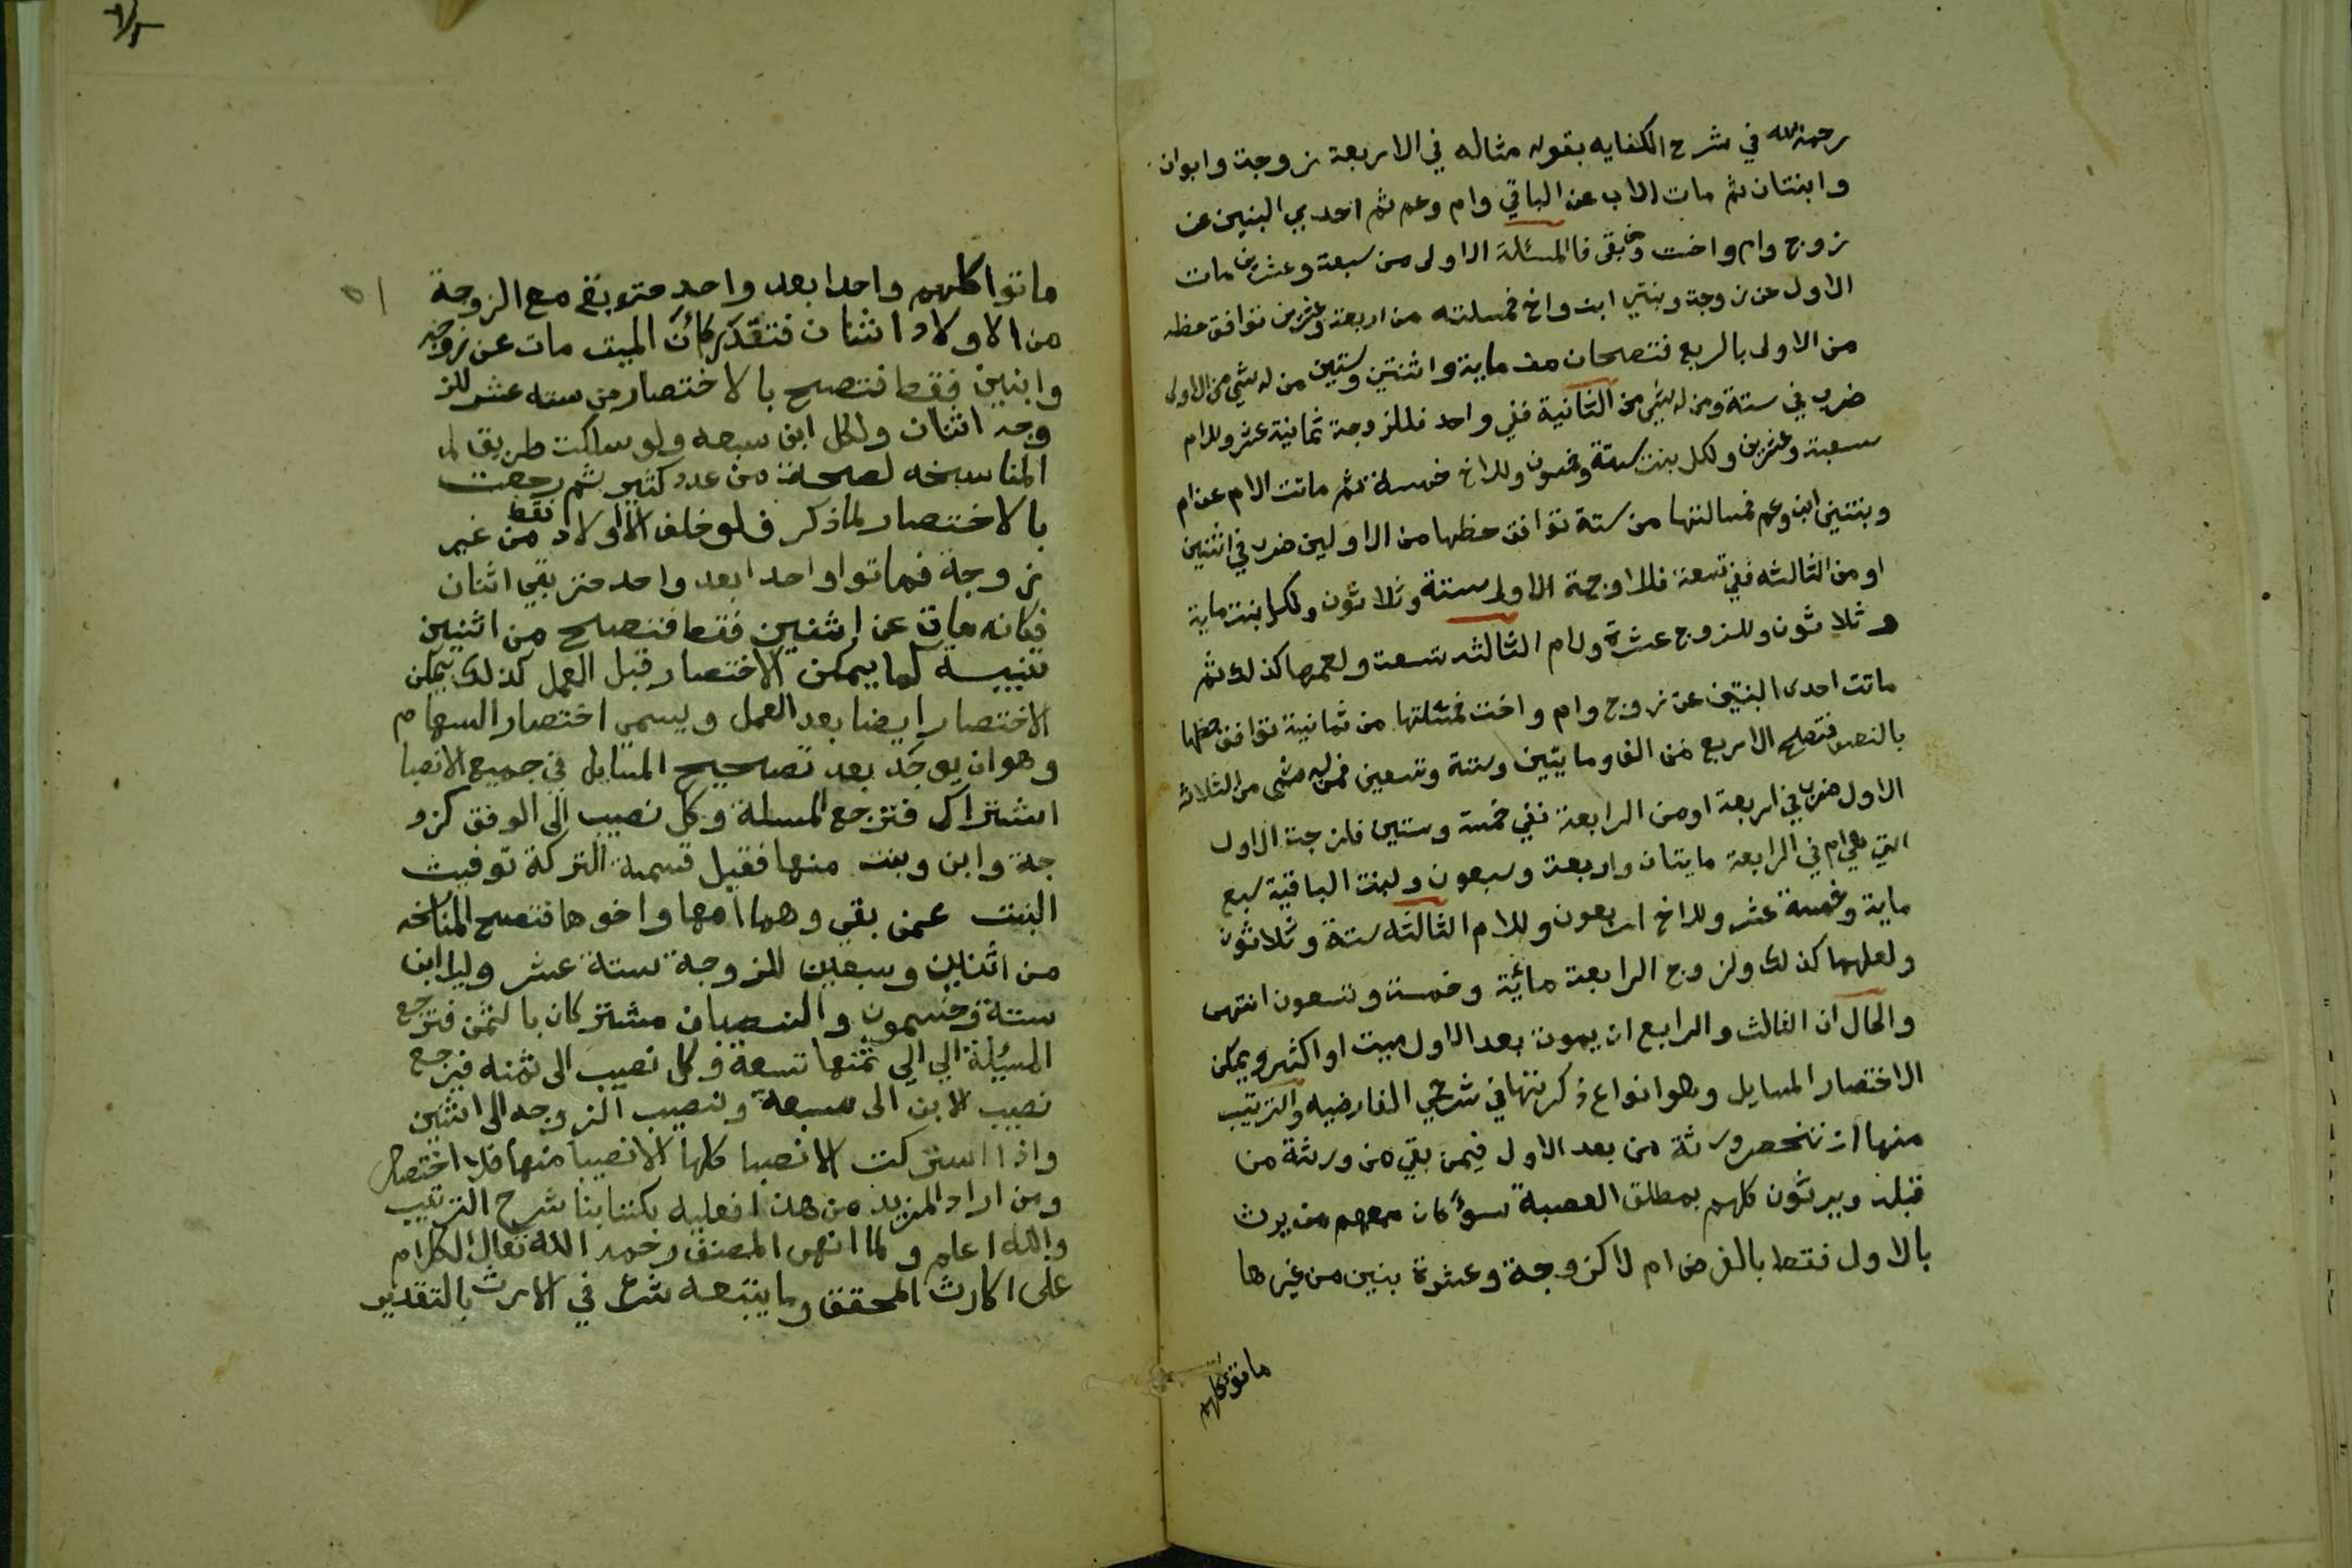 رحمه الله في شرح الكفايه بقوله مثاله في الاربعة زوجة وابوان
وابنتان ثم مات الاب عن الباقي وام وعم ثم احدي البنين عن
زوج وام واخت وبقى فالمسئلة الاولى من سبعة وعشرين مات
الاول عن زوجة وبنتي ابن واخ فمسلته من اربعة وعشرين توافق حظه
من الاولى بالربع فتصحان من ماية واثنتين وستين من له شي من الاولى
ضرب في ستة ومن له شي من الثانية ففي واحد فللزوجة ثمانية عشر وللام
سبعة وعشرين ولكل بنت ستة وخمسون وللاخ خمسة ثم ماتت الام عن ام
وبنتين ابن وعم فمسالتها من ستة توافق حظها من الاولين ضرب في اثنين
او من الثالثه ففي تسعة فللاوجة الاولى ستة وثلاثون ولكل بنت ماية
وثلاثون وللزوج عشرة ولام الثالثه تسعة ولعمها كذلك ثم
ماتت احدى البنتين عن زوج وام واخت فمسئلتها من ثمانية توافق حظها
بالنصف فتصح الاربع من الف ومايتين وستة وتسعين فمن له شي من الثلاثه
الاول ضرب في اربعة او من الرابعة ففي خمسة وستين فلزوجت الاول
التي هي ام في الرابعة مايتان واربعة وسبعون ولبنت الباقية سبع
ماية وخمسة عشر وللاخ اربعون وللام الثالثه ستة وثلاثون
ولعلهما كذلك ولزوج الرابعة مائة وخمسة وتسعون انتهى
والحال ان الثالث والرابع ان يموت بعد الاول ميت او اكثر ويمكن
الاختصار المسايل وهو انواع ذكرتها في شرحي الفارضيه والترتيب
منها ان تنحصر ورثة من بعد الاول فيمن بقي من ورثة من
قبله ويرثون كلهم بمطلق العصبة سوءً كان معهم من يرث
بالاول فقط بالفرض ام لا كزوجة وعشرة بنين من غيرها
ماتوا كلهم
٥١
ماتوا كلهم واحدا بعد واحد حتى بقي مع الزوجة
من الاولاد اثنان فتقدر كأن الميت مات عن زوجه
وابنين فقط فتصح بالاختصار من سته عشر للز
وجه اثنان ولكل ابن سبعه ولو سلكت طريق
المناسخه لصحة من عدد كثير ثم رجعت
بالاختصار لما ذكر فلو خلف الاولاد فقط من غير
زوجة فماتوا واحدا بعد واحد حتى بقي اثنان
فكانه مات عن اثنين فقط فتصح من اثنين
تنبيه كما يمكن الاختصار قبل العمل كذلك يمكن
الاختصار ايضا بعد العمل ويسمى اختصار السهام
وهو ان يوجد بعد تصحيح المسايل في جميع الانصبا
اشتراك فترجع المسلة وكل نصيب الى الوفق كزو
جة وابن وبنت منها فقبل قسمة التركة توفيت
البنت عمن بقي وهما امها واخوها فتصح المناسخه
من اثنين وسبعين للزوجة ستة عشر وللابن
ستة وخمسون والنصيبان مشتركان بالثمن فترجع
المسيلة الي الي ثمنها تسعة وكل نصيب الى ثمنه فيرجع
نصيب الابن الى سبعة ونصيب الزوجه الى اثنين
واذا اشتركت الانصبا كلها الا نصيبا منها فلا اختصار
ومن اراد المزيد من هذا فعليه بكتابنا شرح الترتيب
والله اعلم ولما انهى المصنف رحمه الله تعالى الكلام
على الارث المحقق وما يتبعه شرع في الارث بالتقدير